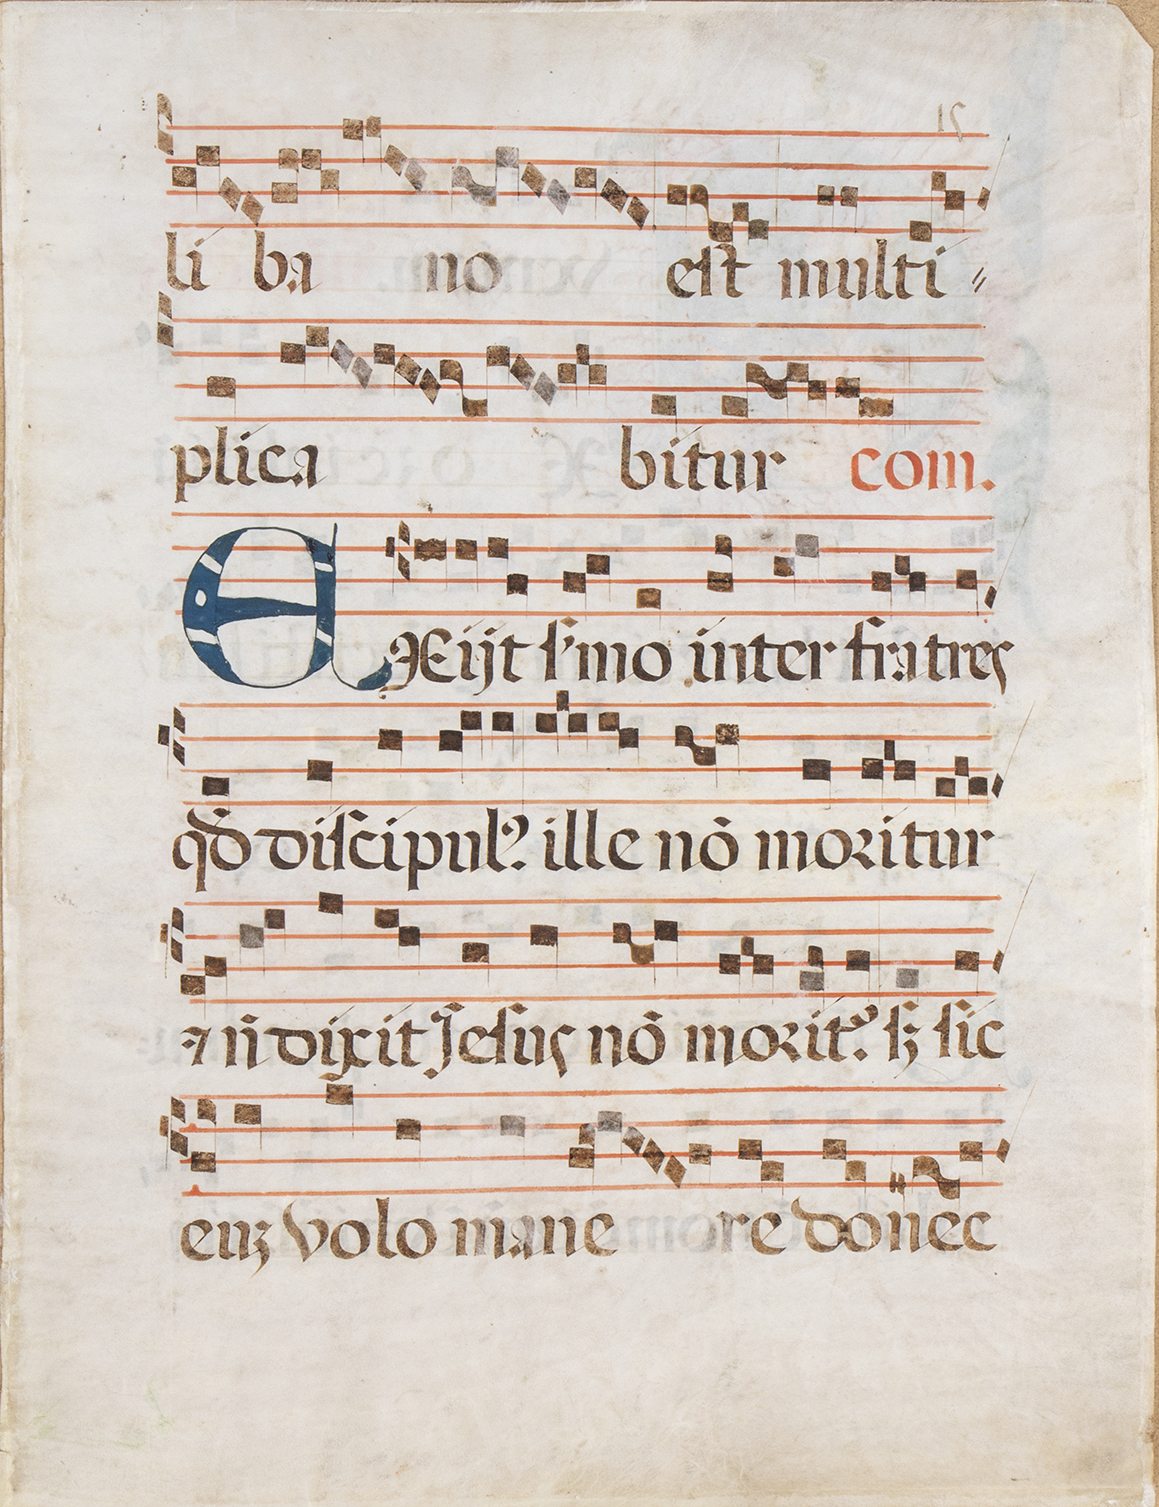 15
li ba no est multi〃
plica bitur com.
EXijt s'mo inter fratres
qđ discipulꝰ. ille nō moritur
⁊ n̄ dixit Jesus nō moritᷣ. sꝫ sic
euꝫ volo mane re donec